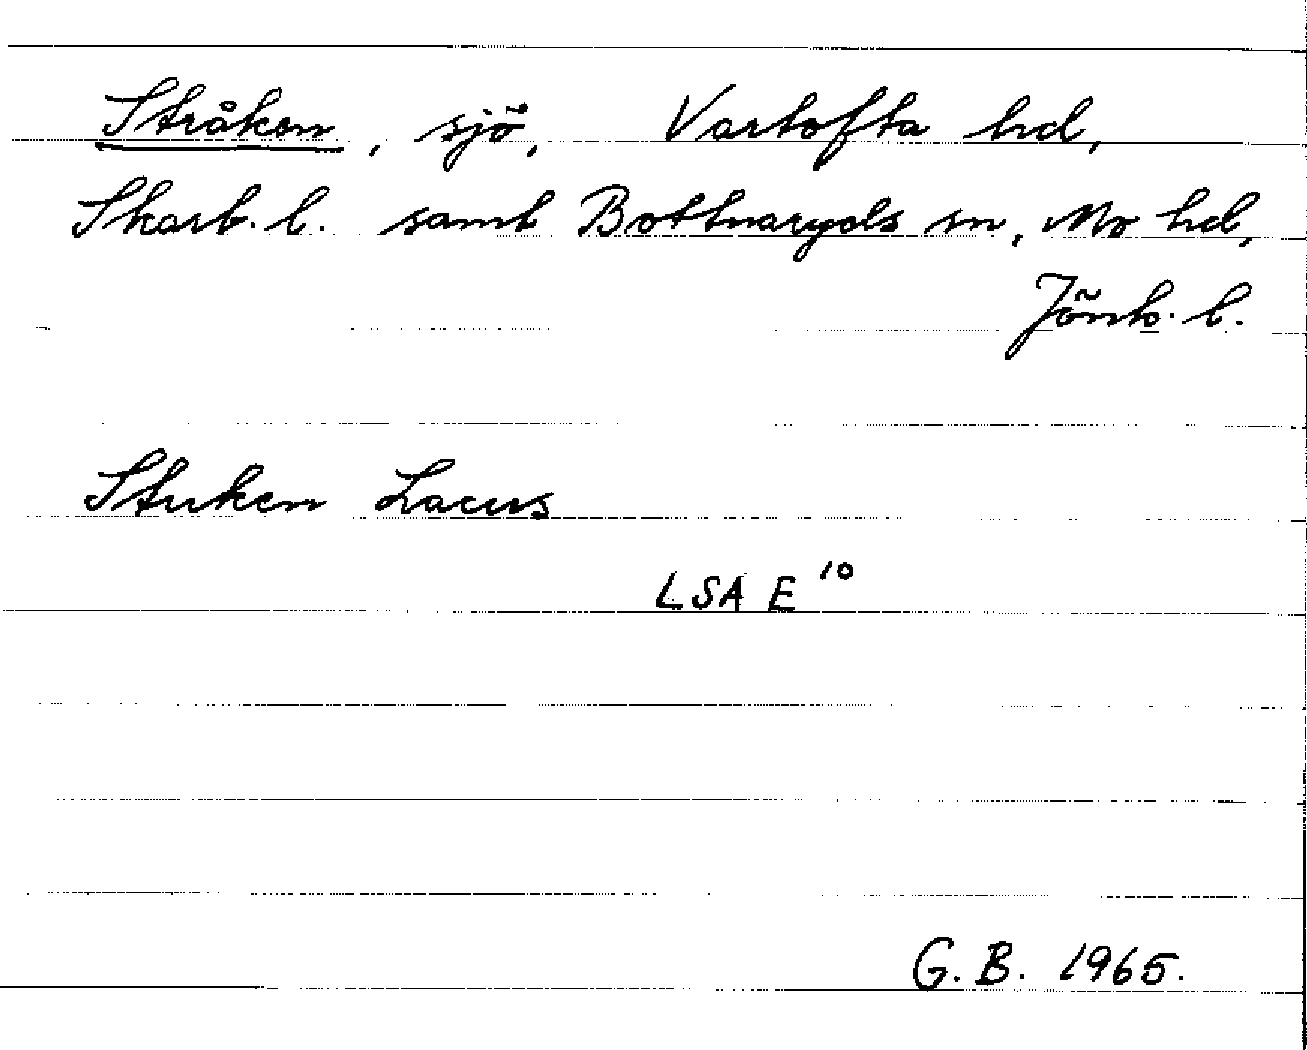 Stråken, sjö, Vartofta hd,
Skarb. l. samt Bottnaryds sn, Mo hd,
Jönk. l.
Stuken Lacus
LSA E¹⁰
G. B. 1965.